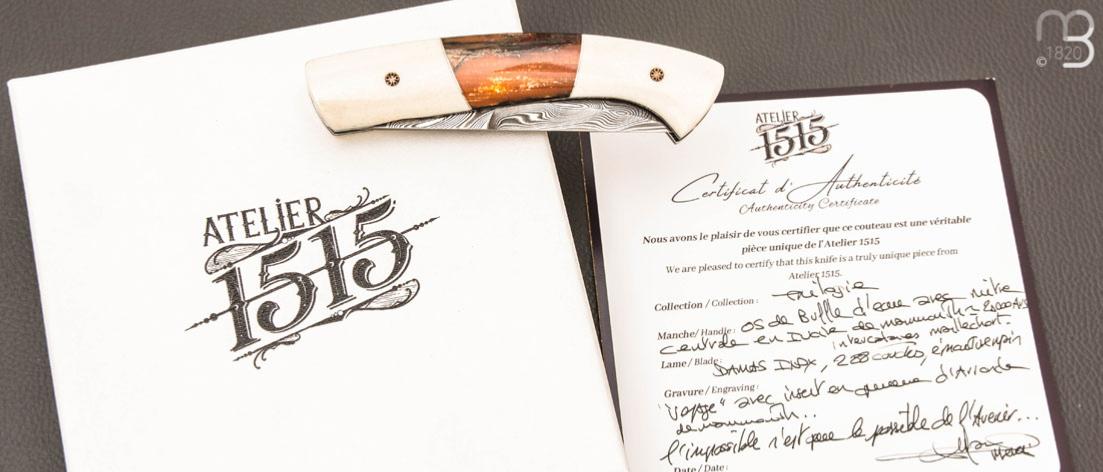 MB
© 1820
ATELIER
1515
ATELIER
1515
Certificat d'Authenticité
Authenticity Certificate
Nous avons le plaisir de vous certifier que ce couteau est une véritable
pièce unique de l'Atelier 1515
We are pleased to certify that this knife is a truly unique piece from
Atelier 1515.
Collection / Collection :
Manche/ Handle : OS de Buffle d'eau avec mitre
centrale en Ivoire de mammouth
intercalaires maillechort.
Lame / Blade : DAMAS INOX, 288 couches, émouture
Gravure / Engraving :
avec insert en
de mammouth..
l'impossible n'est que le possible de l'Avenir...
Date / Date :